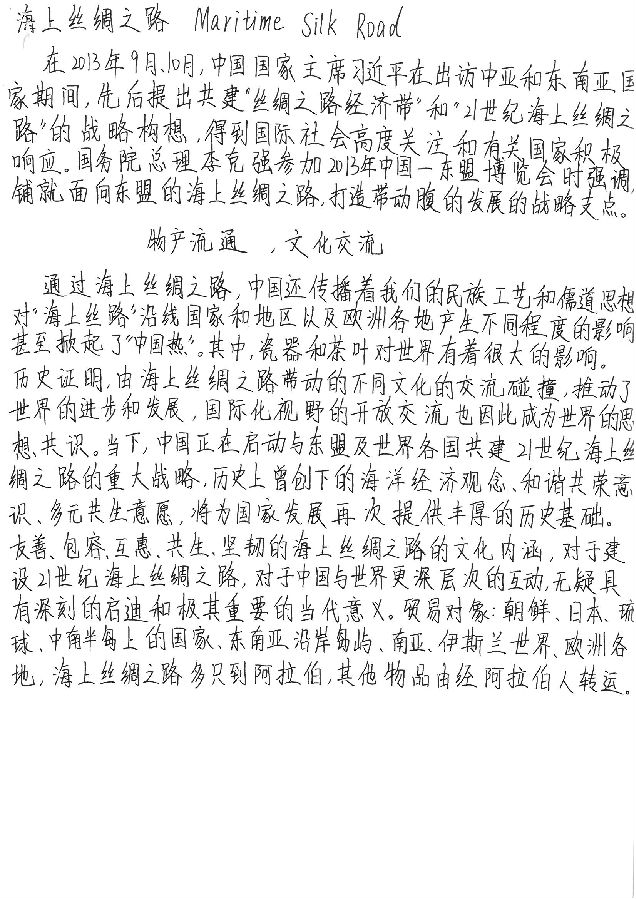 海上丝绸之路 Maritime Silk Road
在2013年9月、10月,中国国家主席习近平在出访中亚和东南亚国
家期间,先后提出共建"丝绸之路经济带"和"21世纪海上丝绸之
路"的战略构想,得到国际社会高度关注和有关国家积极
响应。国务院总理李克强参加2013年中国—东盟博览会时强调,
铺就面向东盟的海上丝绸之路,打造带动腹的发展的战略支点。
物产流通 ,文化交流
通过海上丝绸之路,中国还传播着我们的民族工艺和儒道思想
对"海上丝路"沿线国家和地区以及欧洲各地产生不同程度的影响
甚至掀起了"中国热"。其中,瓷器和茶叶对世界有着很大的影响。
历史证明,由海上丝绸之路带动的不同文化的交流碰撞,推动了
世界的进步和发展,国际化视野的开放交流也因此成为世界的思
想、共识。当下,中国正在启动与东盟及世界各国共建21世纪海上丝
绸之路的重大战略,历史上曾创下的海洋经济观念、和谐共荣意
识、多元共生意愿,将为国家发展再次提供丰厚的历史基础。
友善、包容、互惠、共生、坚韧的海上丝绸之路的文化内涵,对于建
设21世纪海上丝绸之路,对于中国与世界更深层次的互动,无疑具
有深刻的启迪和极其重要的当代意义。贸易对象:朝鲜、日本、琉
球、中南半岛上的国家、东南亚沿岸岛屿、南亚、伊斯兰世界、欧洲各
地,海上丝绸之路多只到阿拉伯,其他物品由经阿拉伯人转运。